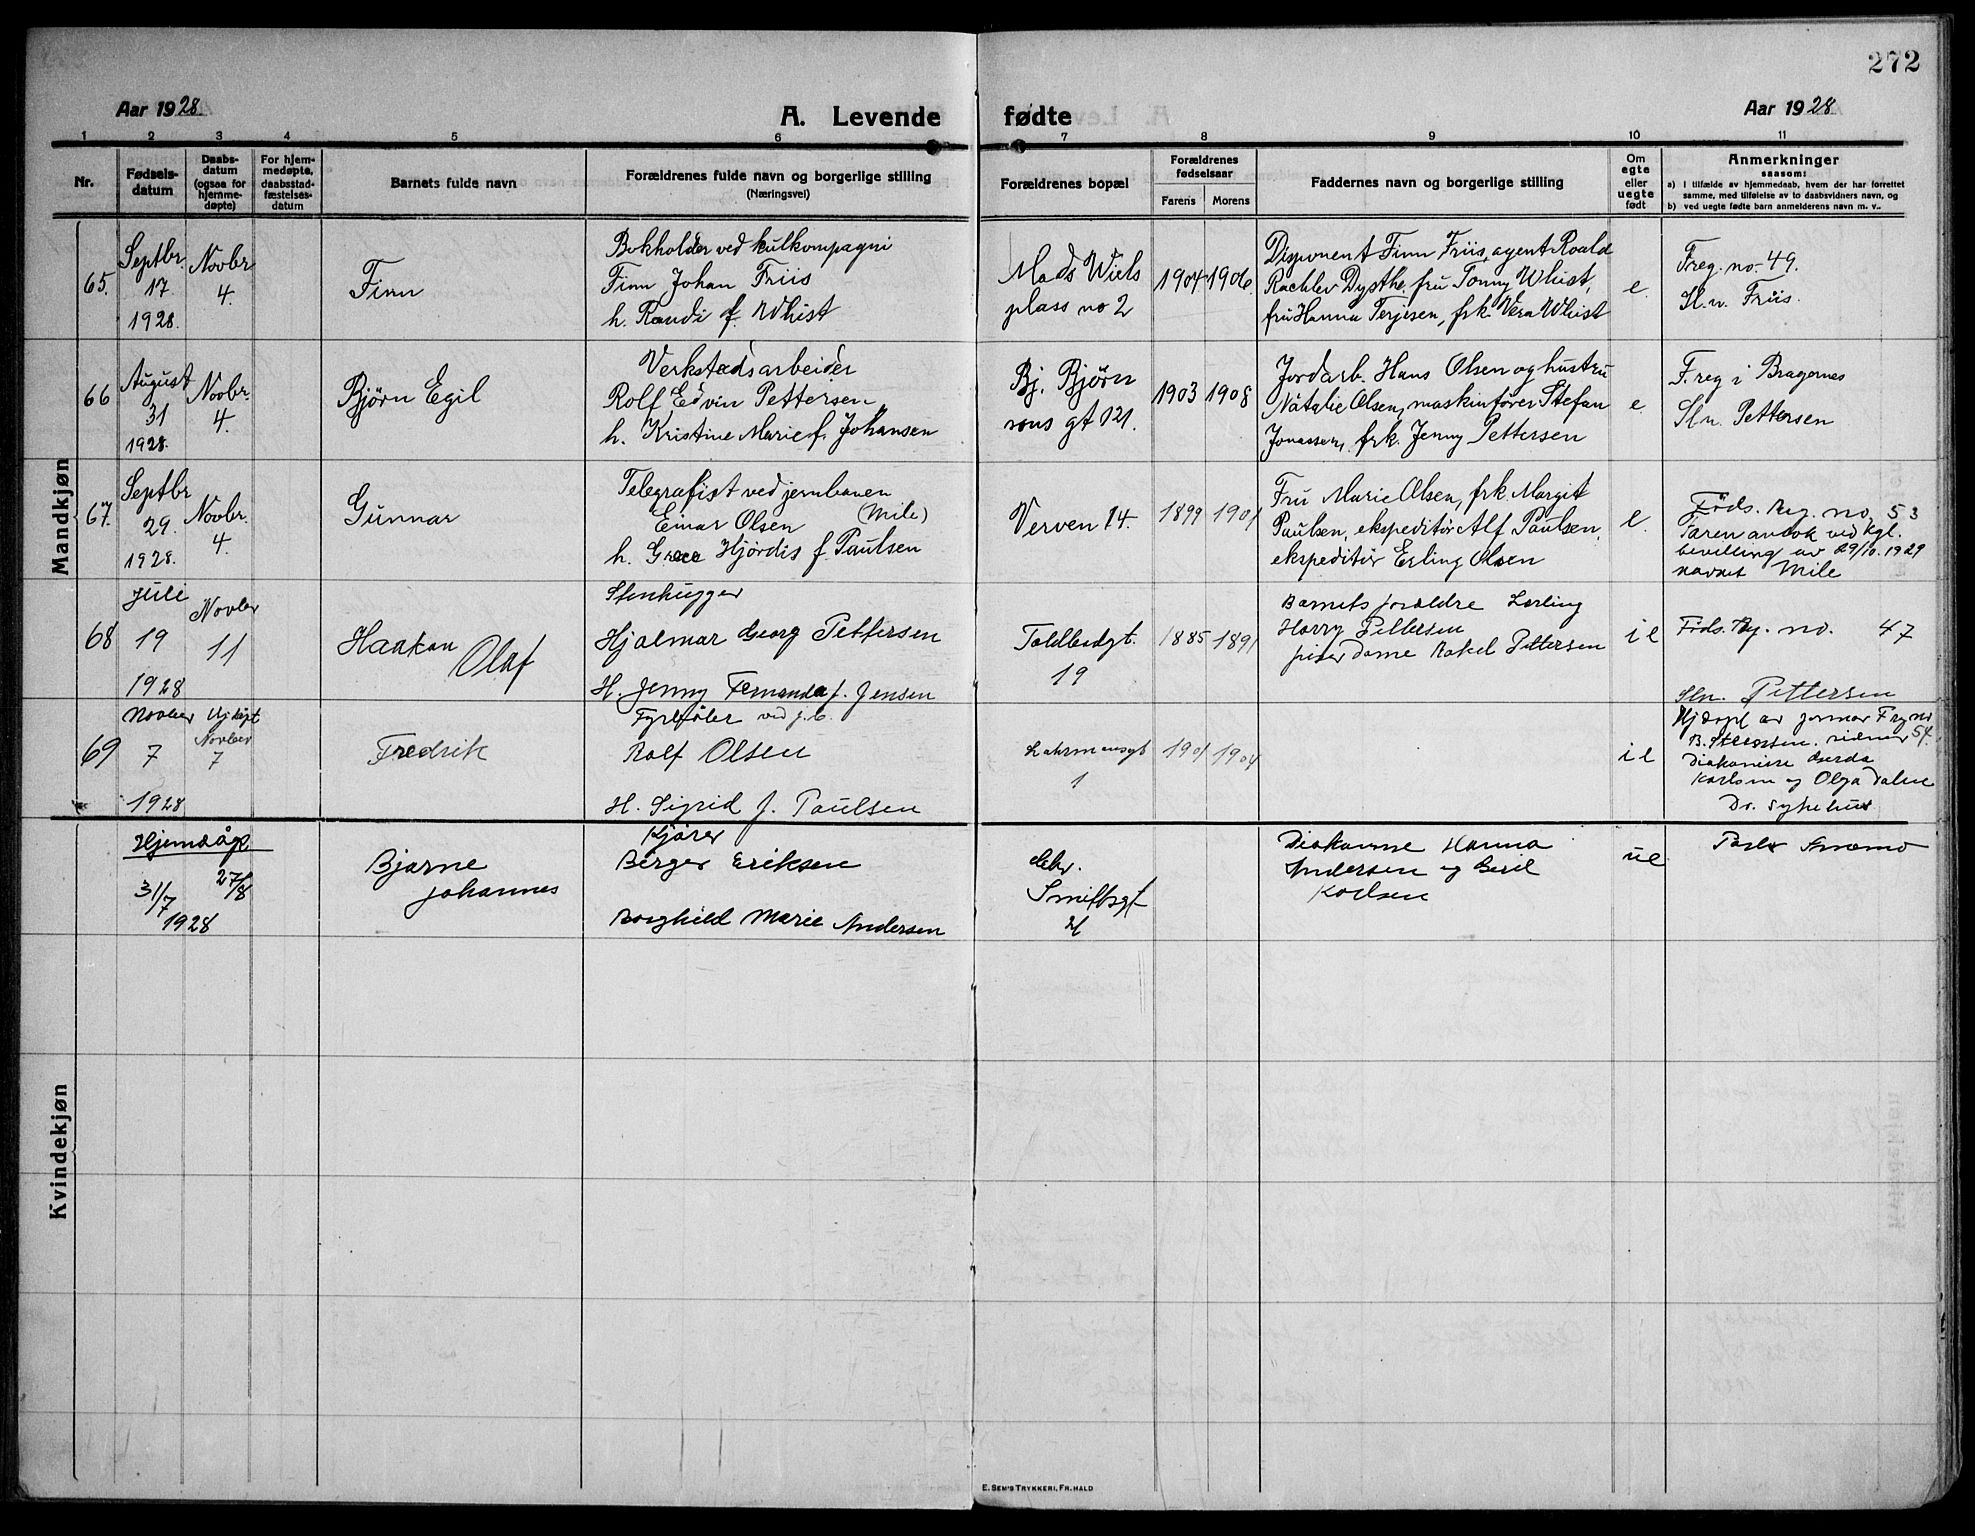 272
Aar 1928
A. Levende fødte
Aar 1928
1 2 3 4 5 6 7 8 9 10 11
Nr.
Fødsels-
datum
Daabs-
datum
(ogsaa for
hjemme-
døpte)
For hjem-
medøpte,
daabsstad-
fæstelses-
datum
Barnets fulde navn
Forældrenes fulde navn og borgerlige stilling
(Næringsvei)
Forældrenes bopæl
Forældrenes
fødselsaar
Farens Morens
Faddernes navn og borgerlige stilling
Om
egte
eller
uegte
født
Anmerkninger
saasom:
a) I tilfælde av hjemmedaab, hvem der har forrettet
samme, med tilføielse av to daabsvidners navn, og
b) ved uegte fødte barn anmelderens navn m. v..
Mandkjøn
65.
Septbr.
17
1928.
Novbr
4.
Finn
Bokholder ved kulkompagni
Finn Johan Friis
h. Randi f. Whist
Mads Wiels
plass no 2
1904 1906
Disponent Finn Friis, agent Roald
Dysthe, fru Tonny Whist,
fru Hanna Terjesen, frk. Vera Whist
e.
Freg. no. 49.
Sl.n. Friis.
66
August
31
1928.
Novbr.
4.
Bjørn Egil
Verkstedsarbeider
Rolf Edvin Pettersen
h. Kristine Marie f. Johansen
Bj. Bjørn
sons gt 121.
1903 1908
Jordarb. Hans Olsen og hustru
Natalie Olsen, maskinfører Stefan
Jonassen, frk. Jenny Pettersen
e.
F.reg i Bragernes
Sl.n. Pettersen
67.
Septbr
29.
1928.
Novbr.
4.
Gunnar
Telegrafist ved jernbanen
Einar Olsen (Mile)
h. Grace Hjördis f. Paulsen
Verven 14.
1899 1901
Fru Marie Olsen, frk. Margit
Paulsen, ekspeditør Alf Paulsen,
ekspeditør Erling Olsen
e.
Föds. Reg. no. 53
Faren antok ved kgl.
bevilling av 29/10.1929
navnet Mile
68
Juli
19
1928
Novber
11
Haakon
Olaf
Stenhugger
Hjalmar Georg Pettersen
H. Jenny Fernanda f. Jensen
Toldbodgt.
19
1885 1891
Barnets forældre Lærling
Harry Pettersen
Dame Rakel Pettersen
Föds. Reg. no. 47
Sln. Pettersen
69
Novber
7
1928
Hjdøpt
Novber
7
Fredrik
Fyrbøter ved j.b.
Rolf Olsen
H. Sigrid f. Paulsen
1
1901 1904
Hjdöpt av
Diakonisse Gerda
Karlsen og Olga Dalne
Dr. Sykehus
Kvindekjøn
Hjemdåp
31/7
1928
27/8
Bjarne
Johannes
Kjörer
Birger Eriksen
Borghild Marie Andersen
Smithsgt
Diakonisse Hanna
Andersen og Beril
Karlsen
E. SEM'S TRYKKERI, FR.HALD